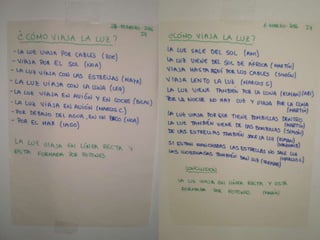 28-FEBRERO, 2014
¿CÓMO VIAJA LA LUZ?
- LA LUZ VIAJA POR CABLES (ZOE)
- VIAJA POR EL SOL (NOA)
- LA LUZ VIAJA CON LAS ESTRELLAS (MAYA)
- LA LUZ VIAJA CON LA LUNA (LEO)
- LA LUZ VIAJA EN AVIÓN Y EN COCHE
- LA LUZ VIAJA EN AVIÓN (MARCOS C)
- POR DEBAJO DEL AGUA, EN UN BARCO (NOA)
- POR EL MAR (IAGO)
LA LUZ VIAJA EN LÍNEA RECTA Y
ESTÁ FORMADA POR FOTONES
6 MARZO, 2014
¿CÓMO VIAJA LA LUZ?
LA LUZ SALE DEL SOL
LA LUZ VIENE DEL SOL DE ÁFRICA (MARTÍN)
VIAJA HASTA AQUÍ POR LOS CABLES (SIMÓN)
VIAJA LENTO LA LUZ (MARCOS C)
LA LUZ VIENE TAMBIÉN POR LA LUNA
POR LA NOCHE NO HAY LUZ Y VIAJA POR LA LUNA
(MARTÍN)
LA LUZ VIAJA POR QUE TIENE BOMBILLAS DENTRO
LA LUZ TAMBIÉN VIENE DE LAS BOMBILLAS (SIMÓN)
DE LAS ESTRELLAS TAMBIÉN SALE LA LUZ
SI ESTÁN MANCHADAS LAS ESTRELLAS NO SALE LUZ
LAS LUCIÉRNAGAS TAMBIÉN DAN LUZ
CONCLUSIÓN
LA LUZ VIAJA EN LÍNEA RECTA Y ESTÁ
FORMADA POR FOTONES